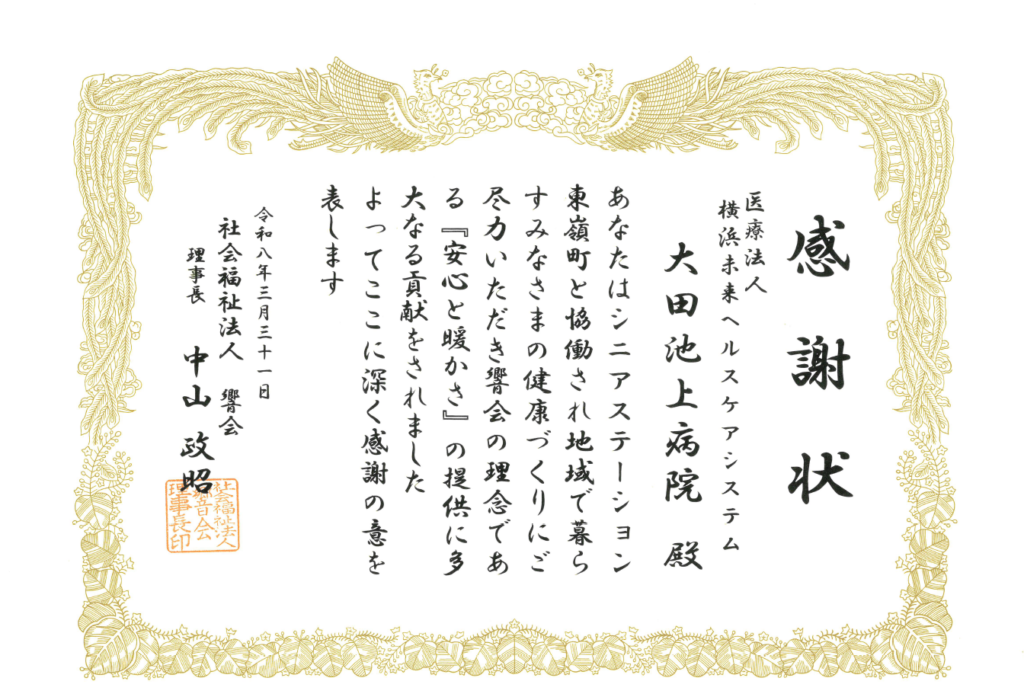 感謝状
医療法人
横浜未来ヘルスケアシステム
大田池上病院 殿
あなたはシニアステーション
東嶺町と協働され地域で暮ら
すみなさまの健康づくりにご
尽力いただき響会の理念であ
る『安心と暖かさ』の提供に多
大なる貢献をされました
よってここに深く感謝の意を
表します
令和八年三月三十一日
社会福祉法人 響会
理事長 中山 政昭
社会福祉法人
響会
理事長印